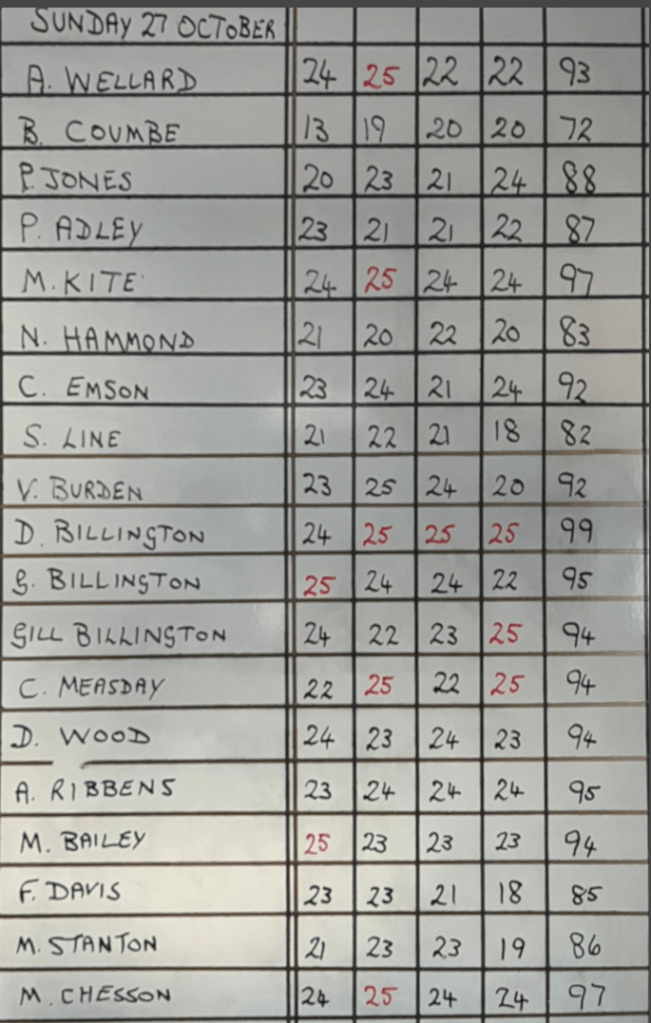 SUNDAY 27 OCTOBER
A. WELLARD 24 25 22 22 93
B. COUMBE 13 19 20 20 72
P. JONES 20 23 21 24 88
P. ADLEY 23 21 21 22 87
M. KITE 24 25 24 24 97
N. HAMMOND 21 20 22 20 83
C. EMSON 23 24 21 24 92
S. LINE 21 22 21 18 82
V. BURDEN 23 25 24 20 92
D. BILLINGTON 24 25 25 25 99
G. BILLINGTON 25 24 24 22 95
GILL BILLINGTON 24 22 23 25 94
C. MEASDAY 22 25 22 25 94
D. WOOD 24 23 24 23 94
A. RIBBENS 23 24 24 24 95
M. BAILEY 25 23 23 23 94
F. DAVIS 23 23 21 18 85
M. STANTON 21 23 23 19 86
M. CHESSON 24 25 24 24 97